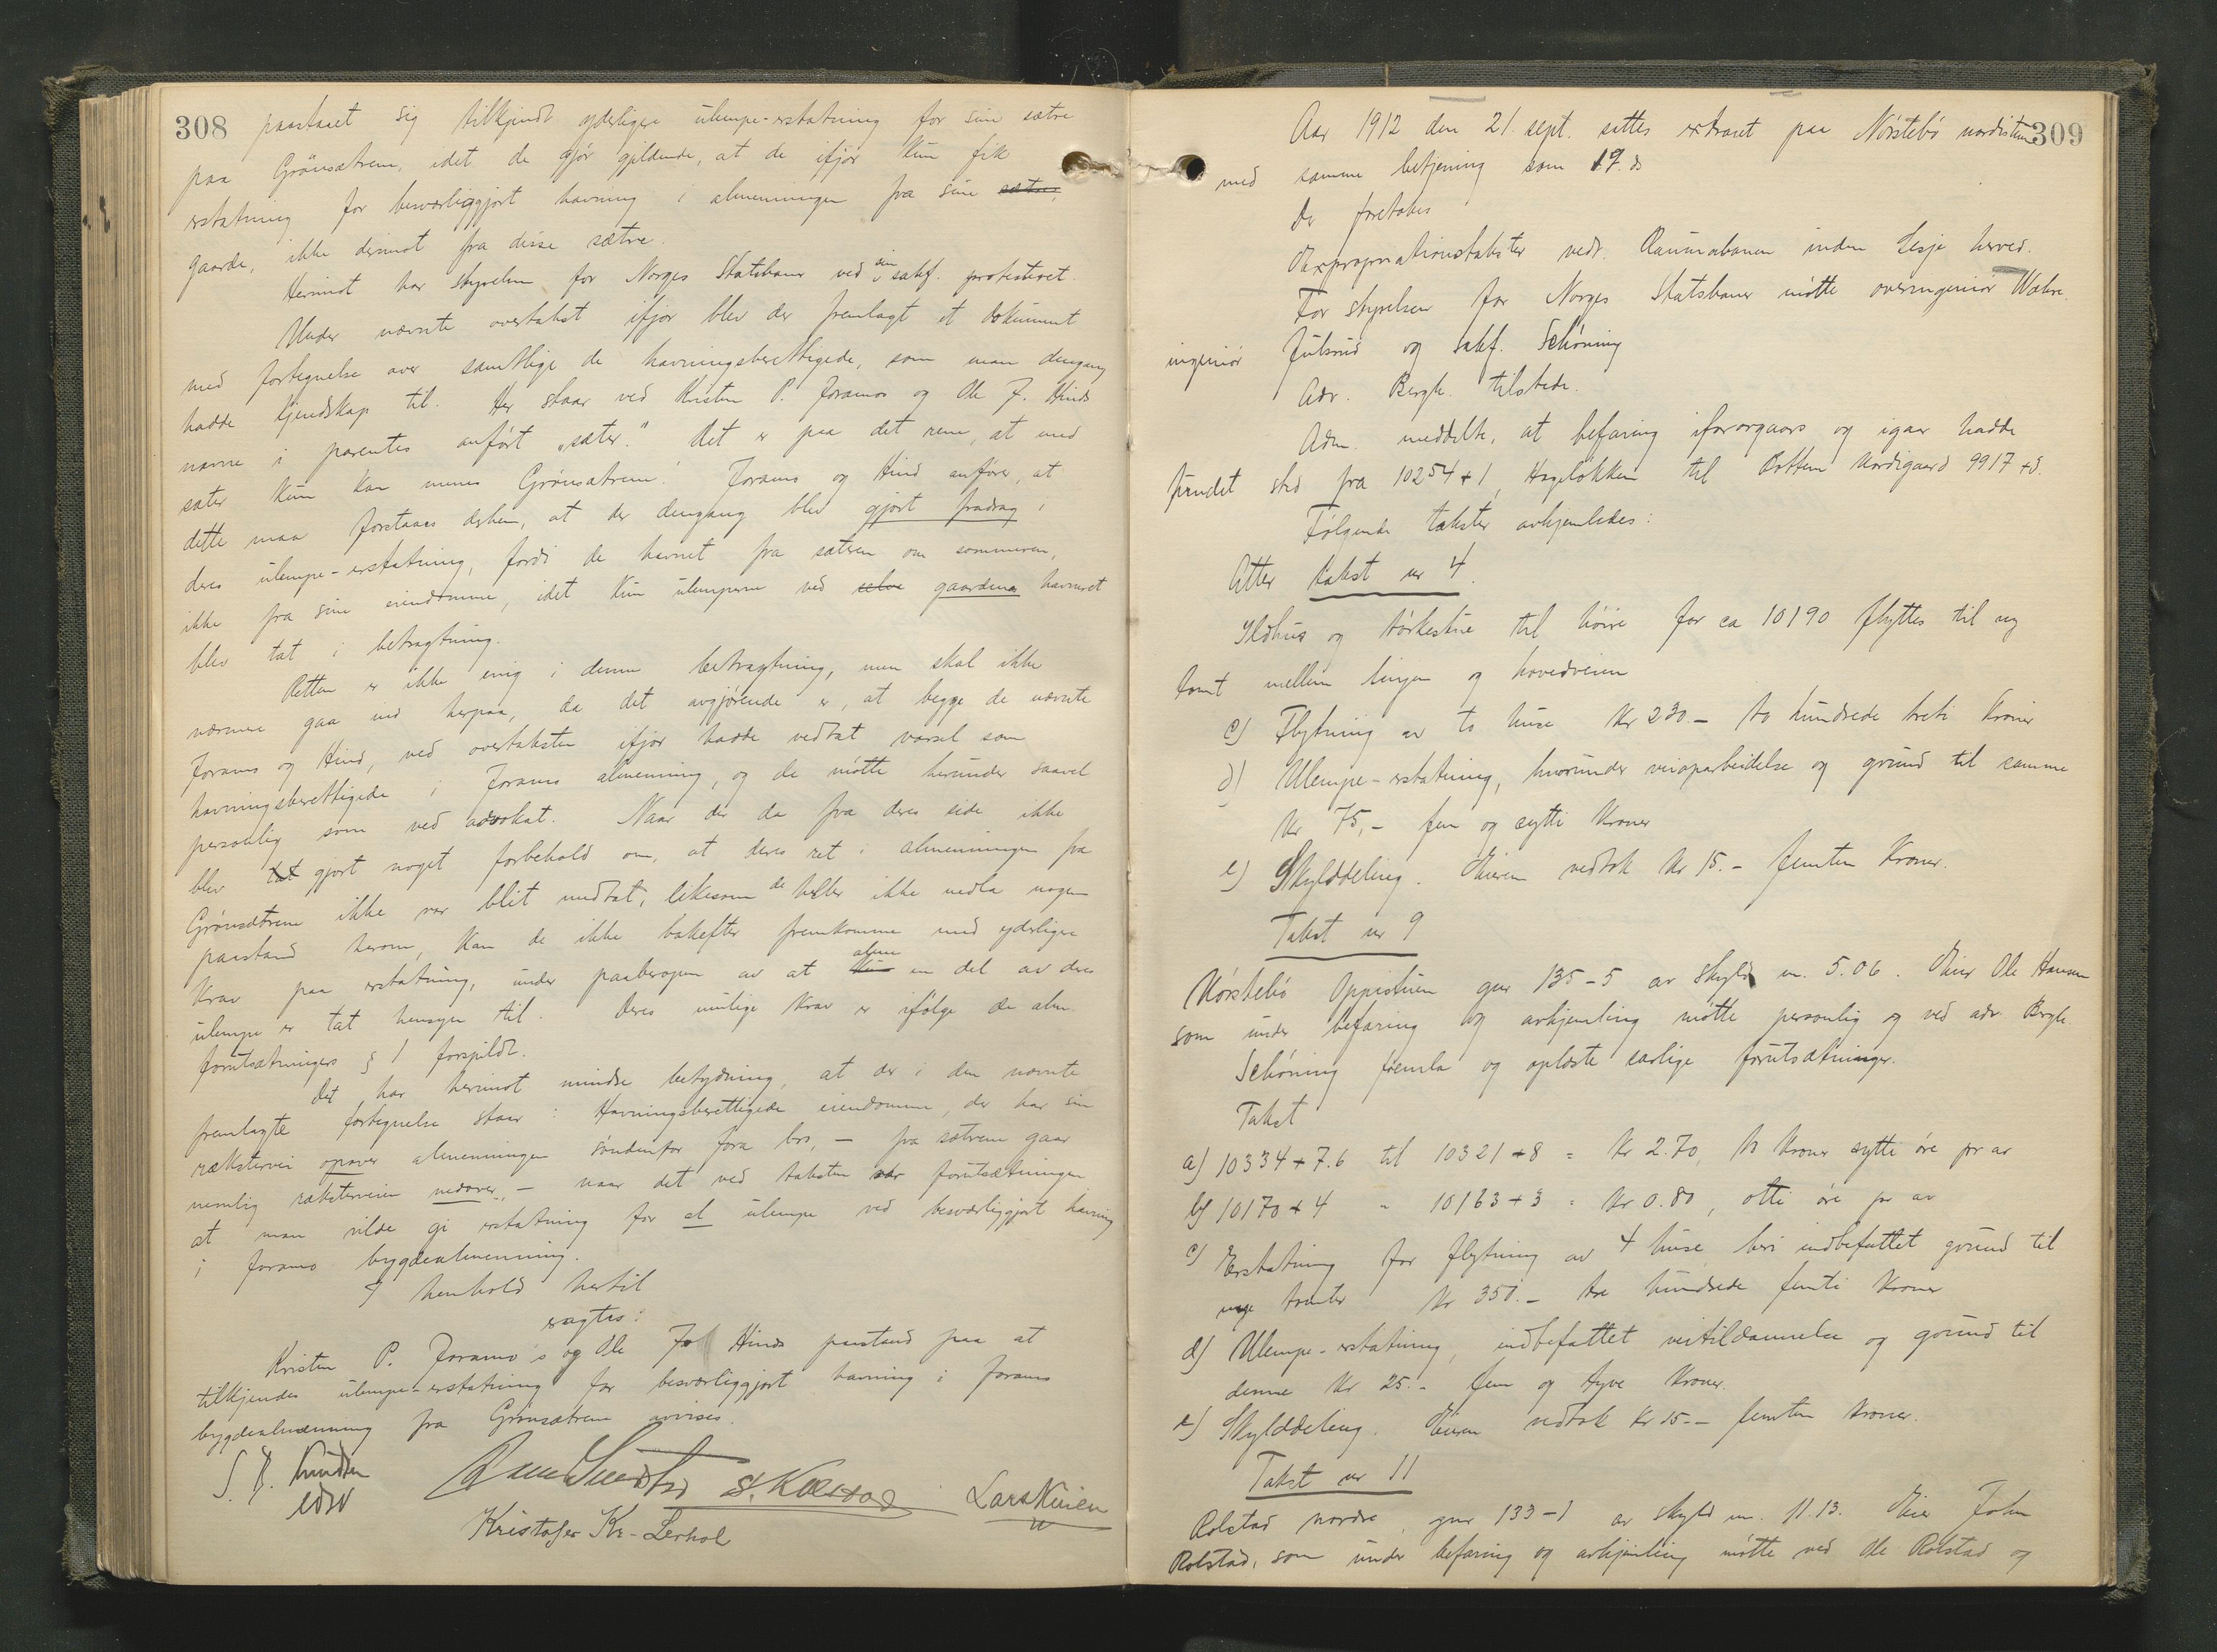 308
paastaaet sig tilkjendt yderligere ulempe-erstatning for sine sætre
paa Grönsætrene, idet de gjör gjeldende, at de ifjor kun fik
erstatning for besværliggjort havning i almenningen fra sine sætre,
gaarde, ikke derimot fra disse sætre.
Herimot har styrelsen for Norges Statsbaner ved sin sakf. protesteret.
Under nævnte overtakst ifjor blev der fremlagt et dokument
med fortegnelse over samtlige de havningsberettigede, som man dengang
hadde kjendskap til. Her staar ved Kristen P. Joramos og Ole J. Hinds
navne i parentes anført "sæter". Det er paa det rene, at med
sæter kun kan menes Grönsætrene. Joramo og Hind anfører, at
dette maa forstaaes derhen, at der dengang blev gjort fradrag i
deres ulempe-erstatning, fordi de havnet fra sæteren om sommeren,
ikke fra sine eiendomme, idet kun ulemperne ved selve gaardenes havneret
blev tat i betragtning.
Retten er ikke enig i denne betragtning, men skal ikke
nærmere gaa ind herpaa, da det avgjørende er, at begge de nævnte
Joramo og Hind, ved overtaksten ifjor hadde vedtat varsel som
havningsberettigede i Joramo almenning, og de mötte herunder saavel
personlig som ved advokat. Naar der da fra deres side ikke
blev tat gjort noget forbehold om, at deres ret i almenningen fra
Grönsætrene ikke var blit medtat, likesom de heller ikke nedla nogen
paastand herom, kan de ikke bakefter fremkomme med yderligere
krav paa erstatning, under paaberopen av at kun alene en del av deres
ulempe er tat hensyn til. Deres mulige krav er ifølge de alm.
forutsætningers § 1 forspildt.
Det har herimot mindre betydning, at der i den nævnte
fremlagte fortegnelse staar: Havningsberettigede eiendomme, der har sin
rækstervei opover almenningen søndenfor Jora bro, — fra sætrene gaar
nemlig ræksterveien nedover, — naar det ved taksten var forutsætningen
at man vilde gi erstatning for al ulempe ved besværliggjort havning
i Joramo bygdealmenning.
I henhold hertil
eragtes:
Kristen P. Joramo's og Ole J. Hinds paastand paa at
tilkjendes ulempe-erstatning for besværliggjort havning i Joramo
bygdealmenning fra Grönsætrene avvises.
Kristofer Kr. Lerhol
309
Aar 1912 den 21. sept. sattes extraret paa Nörstebö nordistuen
med samme betjening som 19. ds
Der foretokes
Expropriationstakster vedr. Raumabanen inden Lesje herred.
For styrelsen for Norges Statsbaner mötte overingeniör Wahre
ingeniör Julsrud og sakf. Schöning
Adv. Bergh tilstede.
Adm. meddelte, at befaring iforgaars og igaar hadde
fundet sted fra 10254 + 1, Hageløkken til Bottem Nordigaard 9917 + 3.
Følgende takster avhjemledes:
Atter takst nr 4.
Ildhus og tørkestue til höire for ca 10190 flyttes til ny
tomt mellem linjen og hovedveien
c) Flytning av to huse Kr 230.— to hundrede treti kroner
d) Ulempe-erstatning, hvorunder veioparbeidelse og grund til samme
Kr 75,— fem og sytti kroner
e) Skylddeling. Eieren vedtok Kr 15.— femten kroner.
Takst nr 9
Nörstebö Oppistuen gnr 135-5 av skyld m. 5.06. Eier Ole Hansen
som under befaring og avhjemling mötte personlig og ved adv. Bergh
Schöning fremla og oplæste særlige forutsætninger.
Takst
a) 10334 + 7.6 til 10321 + 8 = Kr 2.70, to kroner sytti öre pr ar
b) 10170 + 4 " 10163 + 3 = Kr 0.80, otti öre pr ar
c) Erstatning for flytning av 4 huse heri indbefattet grund til
nye tomter Kr 350.— tre hundrede femti kroner
d) Ulempe-erstatning, indbefattet veitildannelse og grund til
denne Kr 25.- fem og tyve kroner.
e) Skylddeling. Eieren vedtok Kr 15.— femten kroner.
Takst nr 11
Rolstad nordre, gnr 133-1 av skyld m. 11.13. Eier John
Rolstad, som under befaring og avhjemling mötte ved Ole Rolstad og